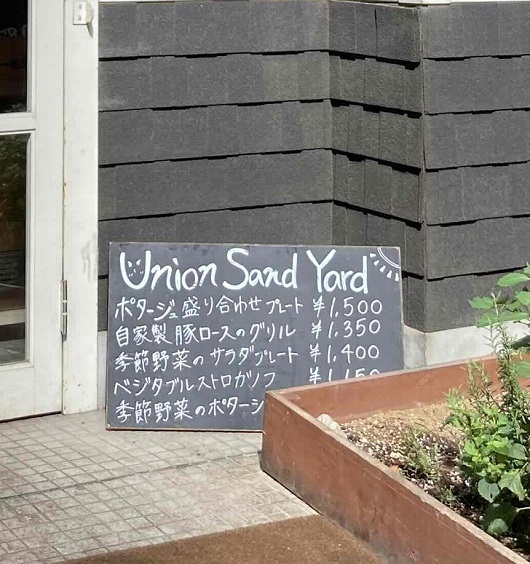 Union Sand Yard
ポタージュ盛り合わせプレート ¥1,500
自家製 豚ロースのグリル ¥1,350
季節野菜の サラダプレート ¥1,400
ベジタブルストロガノフ ¥1,150
季節野菜のポタージ